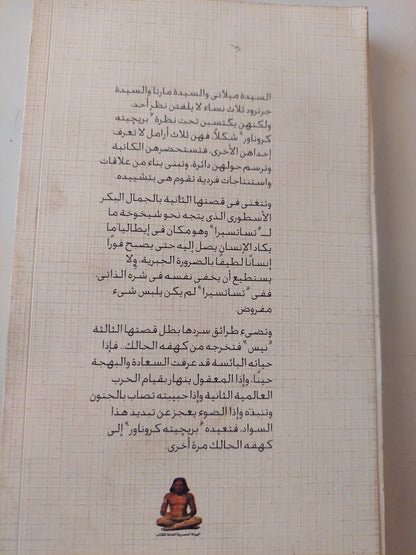 السيدة ميلانى والسيدة مارتا والسيدة
جرترود ثلاث نساء لا يلفتن نظر أحد.
ولكنهن يكتسبن تحت نظرة "بريچيته
كروناور" شكلاً، فهن ثلاث أرامل لا تعرف
إحداهن الأخرى. فتستحضرهن الكاتبة
وترسم حولهن دائرة. وتبنى بناء من علاقات
واستنتاجات فردية تقوم هى بتشييده.
وتتغنى فى قصتها الثانية بالجمال البكر
الأسطورى الذى يتجه نحو شيخوخة ما
لـ "تسانسيرا" وهو مكان فى إيطاليا ما
يكاد الإنسان يصل إليه حتى يصبح فورًا
إنسانًا لطيفًا بالضرورة الجبرية. ولا
يستطيع أن يخفى نفسه فى شره الذاتى.
ففى "تسانسيرا" لم يكن يلبس شىء
مفروض.
وتضىء طرائق سردها بطل قصتها الثالثة
"نيس" فتخرجه من كهفه الحالك.. فإذا
حياته البائسة قد عرفت السعادة والبهجة
حينًا. وإذا المعقول ينهار بقيام الحرب
العالمية الثانية وإذا حبيبته تصاب بالجنون
وتنبذه وإذا الضوء يعجز عن تبديد هذا
السواد. فتعيده "بريچيته كروناور" إلى
كهفه الحالك مرة أخرى.
الهيئة المصرية العامة للكتاب